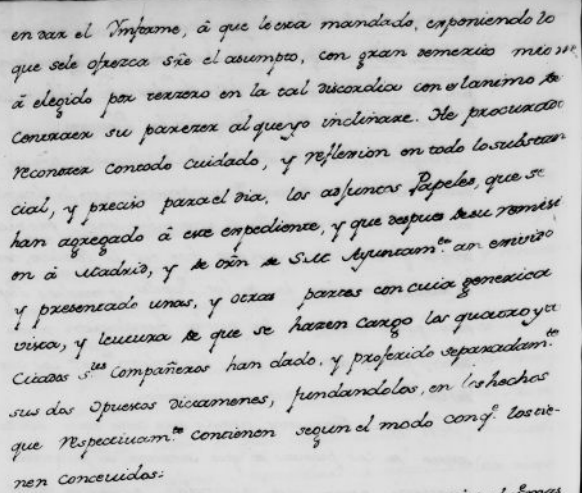 en dar el Ynforme, â que le esta mandado, exponiendo lo
que sele ofrezca sre el asumpto, con gran demerito mio me
â elegido por terzero en la tal discordia con el animo de
contraer su parezer al que yo inclinare. He procurado
reconozer contodo cuidado, y reflexion en todo lo substan
cial, y preciso para el dia, los adjuntos Papeles, que se
han agregado â este expediente, y que despues de su remisi
on â Madrid, y de orn de S.M. Ayuntam.to an emitido
y presentado unas, y otras partes con cuia generica
vista, y lectura de que se hazen cargo los quatro ya
Citados s.res Compañeros han dado, y proferido separadam.te
sus dos Opuestos dictamenes, fundandolos, en los hechos
que respectivam.te contienen segun el modo con q.e los tie-
nen concevidos: